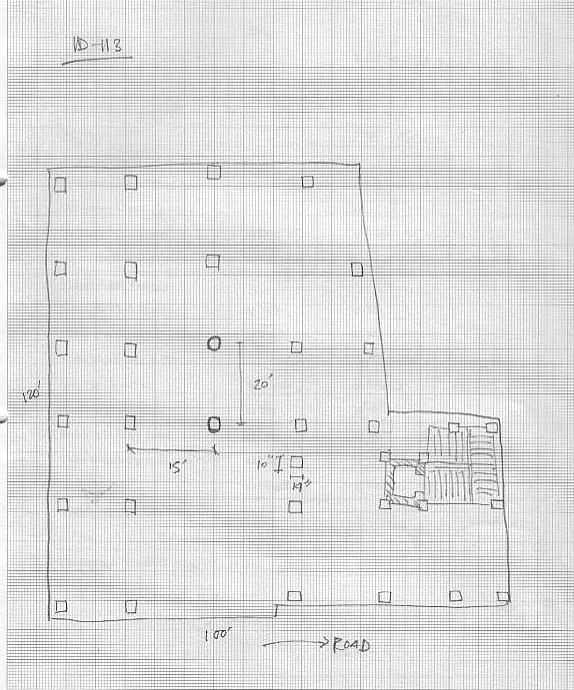 ID-113
20'
120'
15'
10"
14"
100'
→ ROAD